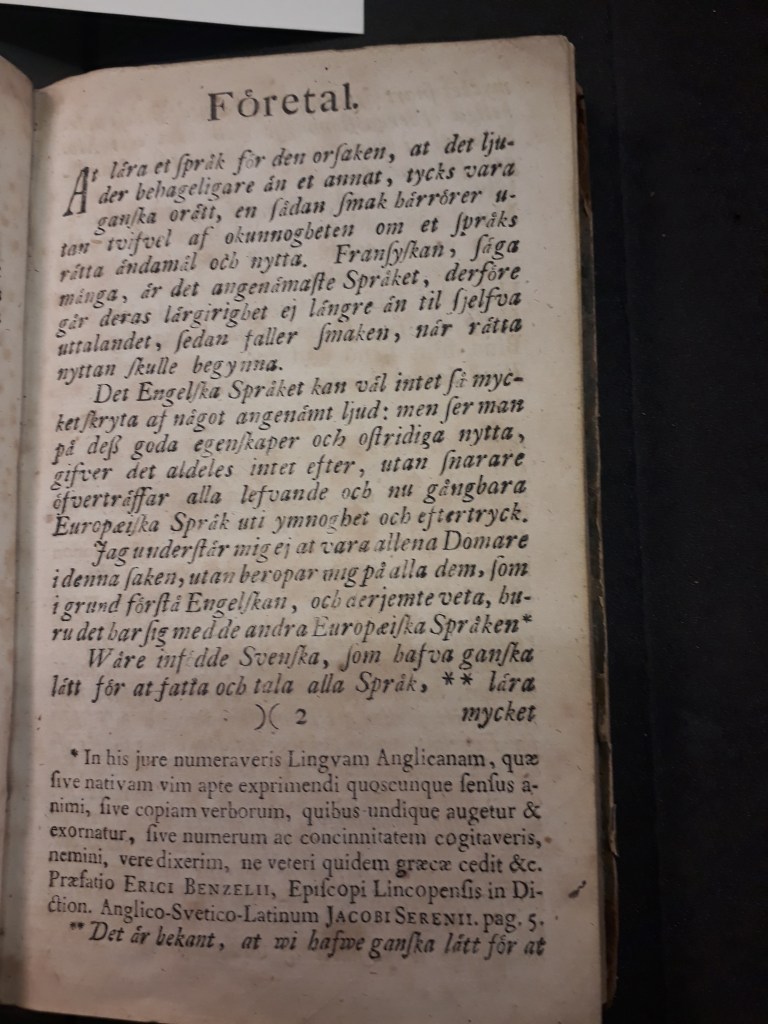 Företal.
At lära et ſpråk för den orſaken, at det lju-
der behageligare än et annat, tycks vara
ganſka orätt, en ſådan ſmak härrörer u-
tan tvifvel af okunnogheten om et ſpråks
rätta ändamål och nytta. Franſyſkan, ſäga
många, är det angenämaſte Språket, derföre
går deras lärgirighet ej längre än til ſjelfva
uttalandet, ſedan faller ſmaken, när rätta
nyttan ſkulle begynna.
Det Engelſka Språket kan väl intet ſå myc-
ket ſkryta af något angenämt ljud: men ſer man
på deß goda egenſkaper och oſtridiga nytta,
gifver det aldeles intet efter, utan ſnarare
öfverträffar alla lefvande och nu gångbara
Europæiſka Språk uti ymnoghet och eftertryck.
Jag underſtår mig ej at vara allena Domare
i denna ſaken, utan beropar mig på alla dem, ſom
i grund förſtå Engelſkan, och derjemte veta, hu-
ru det har ſig med de andra Europæiſka Språken*
Wåre infödde Svenſka, ſom hafva ganſka
lätt för at fatta och tala alla Språk, ** lära
)( 2 mycket
* In his jure numeraveris Lingvam Anglicanam, quæ
ſive nativam vim apte exprimendi quoscunque ſenſus a-
nimi, ſive copiam verborum, quibus undique augetur &
exornatur, ſive numerum ac concinnitatem cogitaveris,
nemini, vere dixerim, ne veteri quidem græcæ cedit &c.
Præfatio ERICI BENZELII, Epiſcopi Lincopenſis in Di-
ction. Anglico-Svetico-Latinum JACOBI SERENII. pag. 5.
** Det är bekant, at wi hafwe ganſka lätt för at